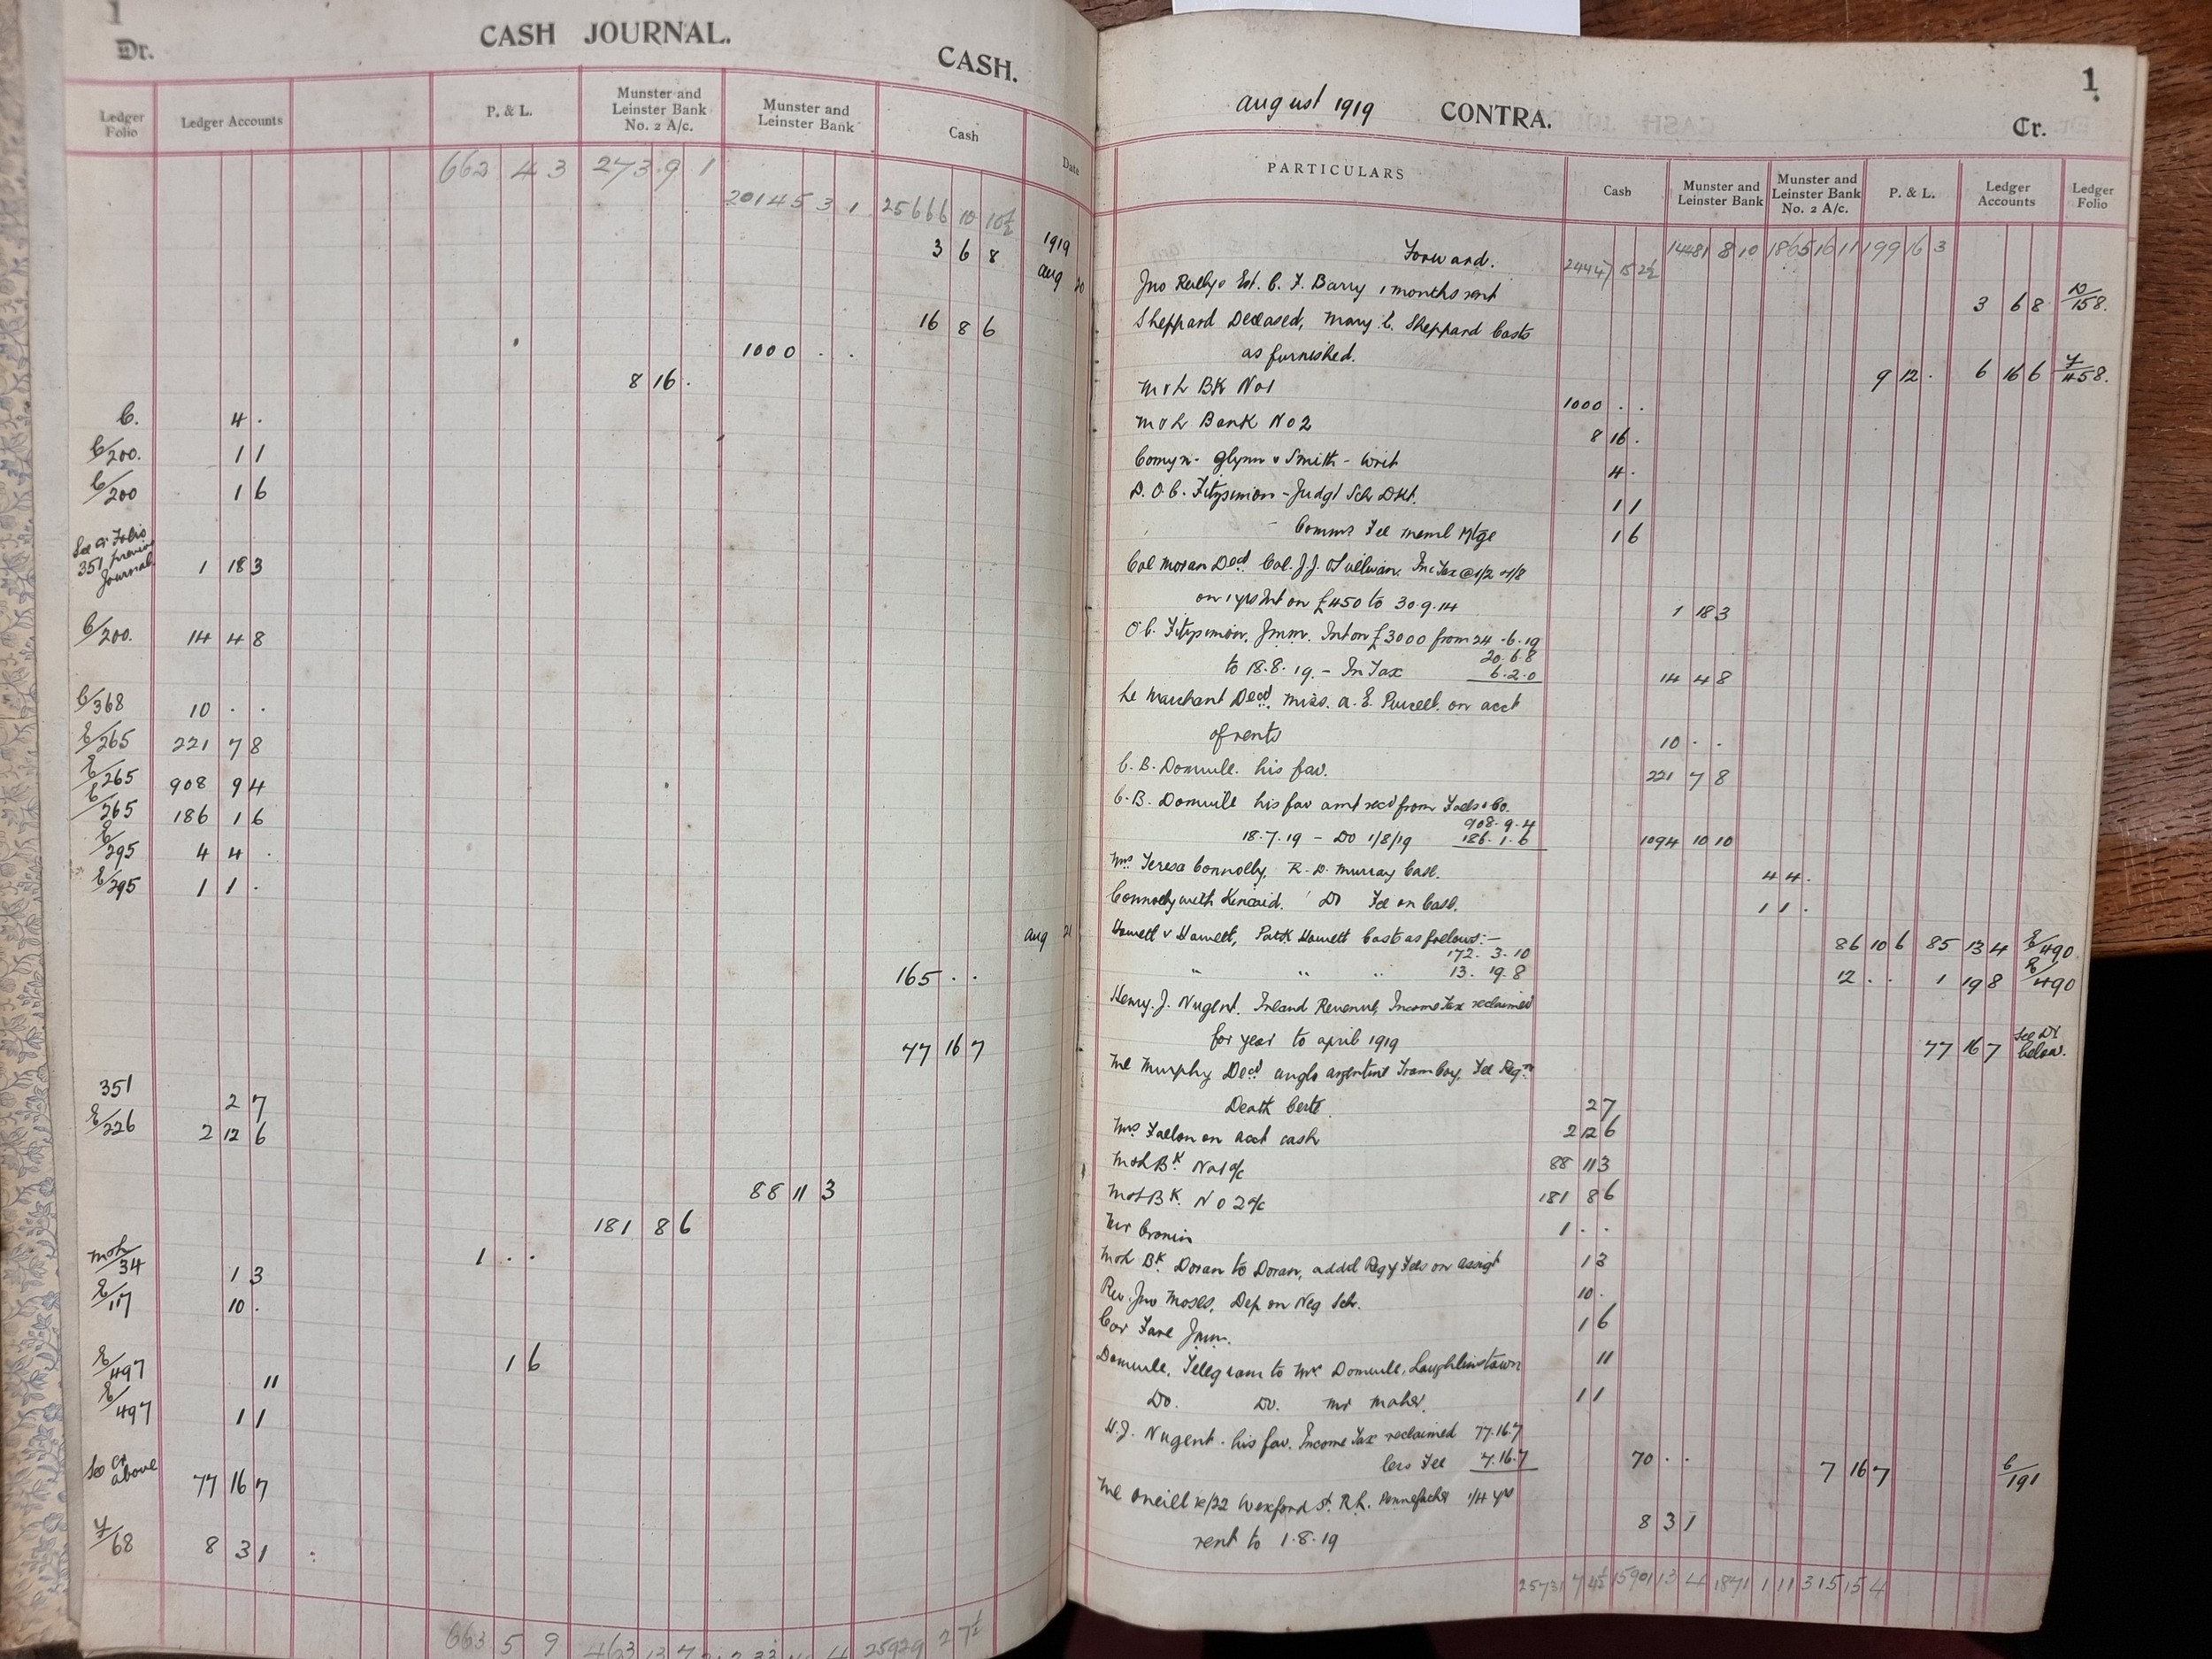 1
Dr.
CASH JOURNAL.
CASH.
Ledger Folio
Ledger Accounts
P. & L.
Munster and Leinster Bank No. 2 A/c.
Munster and Leinster Bank
Cash
Date
662 4 3 273 9 1
20145 3 1 25666 10 10½
3 6 8 1919
Aug 20
16 8 6
1000 . .
8 16 .
C. 4 .
C/200. 1 1
C/200 1 6
See Cr Folio
351 previous
Journal 1 18 3
C/200. 14 4 8
C/368 10 . .
E/265 221 7 8
E/265 908 9 4
E/265 186 1 6
E/295 4 4 .
E/295 1 1 .
Aug 21
165 . .
77 16 7
351 2 7
E/226 2 12 6
88 11 3
181 8 6
1 . .
M&L/34 1 3
E/117 10 .
1 6
E/497 11
E/497 1 1
See Cr
above 77 16 7
F/68 8 3 1
663 5 9 463 13 7 25929 2 7½
August 1919
CONTRA.
1
Cr.
PARTICULARS
Cash
Munster and Leinster Bank
Munster and Leinster Bank No. 2 A/c.
P. & L.
Ledger Accounts
Ledger Folio
Forward. 24447 15 2½ 14481 8 10 1865 16 11 199 16 3
Jno Reilly's Est. C. F. Barry 1 months rent 3 6 8 D/158.
Sheppard Deceased, Mary C. Sheppard Costs
as furnished. 9 12 . 6 16 6 F/458.
M & L BK No1 1000 . .
M & L Bank No 2 8 16 .
Comyn - Glynn v Smith - Writ 4 .
D. O'C. Fitzsimon - Judgt Sch Dkt. 1 1
Comms Fee meml Mtge 1 6
Col Moran Decd Col. J. J. O'Sullivan. Inc Tax @ 1/2 & 1/8
on 1 yrs Int on £450 to 30.9.14 1 18 3
O'C. Fitzsimon, Jmm. Int on £3000 from 24.6.19
20.6.8
to 18.8.19. - In Tax 6.2.0 14 4 8
Le Marchant Decd. Miss. A. E. Purcell. on acct
of rents 10 . .
C. B. Domvile. his fav. 221 7 8
C. B. Domvile his fav amt recd from
908.9.4
18.7.19 - Do 1/8/19 186.1.6 1094 10 10
Mrs Teresa Connolly. R. D. Murray Case. 4 4 .
Connolly with Kincaid. Do Fee on Case. 1 1 .
Hamett v Hamett, Patk Hamett Costs as follows:-
172. 3. 10 86 10 6 85 13 4 E/490
" " " 13. 19. 8 12 . . 1 19 8 E/490
Henry. J. Nugent. Inland Revenue, Income Tax reclaimed
for year to April 1919 77 16 7 See Dr below.
Ml Murphy Decd Anglo Argentine Tram Coy. Fee Regn
Death Certe. 2 7
Mrs Fallon on acct cash 2 12 6
M & L BK No1 a/c 88 11 3
M & L BK. No 2 a/c 181 8 6
Mr Cronin 1 . .
M & L BK Doran to Doran, addl Regy Fees on assigt 1 3
Rev. Jno Moses. Dep on Neg Sch. 10 .
Car Fare Jmm. 1 6
Domvile, Telegram to Mr Domvile, Loughlinstown 11
Do. Do. Mr Maher. 1 1
H. J. Nugent. his fav. Income Tax reclaimed 77.16.7
less Fee 7.16.7 70 . . 7 16 7 C/191
Ml O'Neill re/22 Wexford St. R. L. Pennefather 1/4 yrs
rent to 1.8.19 8 3 1
25731 7 4½ 15901 13 4 1871 1 11 315 15 4